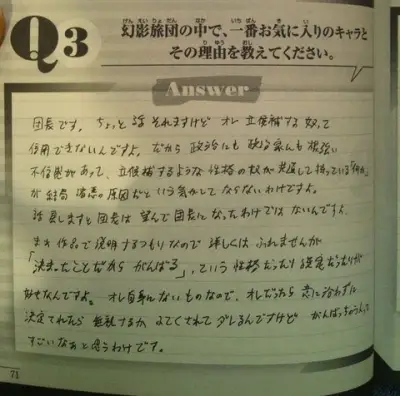 Q3
幻影旅団の中で、一番お気に入りのキャラと
その理由を教えてください。
Answer
団長です。ちょっと話それますけど オレ 立候補する奴って
信用できないんですよ。だから 政治にも 政治家にも 根強い
不信感があって、立候補するような性格の奴が共通して持っている「何か」
が 結局 諸悪の原因だという気がして ならないわけですよ。
話戻しますと 団長は 望んで団長になったわけでは ないんですよ。
まあ 作品で説明するつもりなので 詳しくは ふれませんが
「決まったことだから がんばる」、という 性格だったり 設定だったりが
好きなんですよ。オレ自身にないものなので、オレだったら 意に沿わずに
決定されたら 無視するか よくてくされて ダレるんですけど がんばっちゃうんで
すごいなあと思うわけです。
71